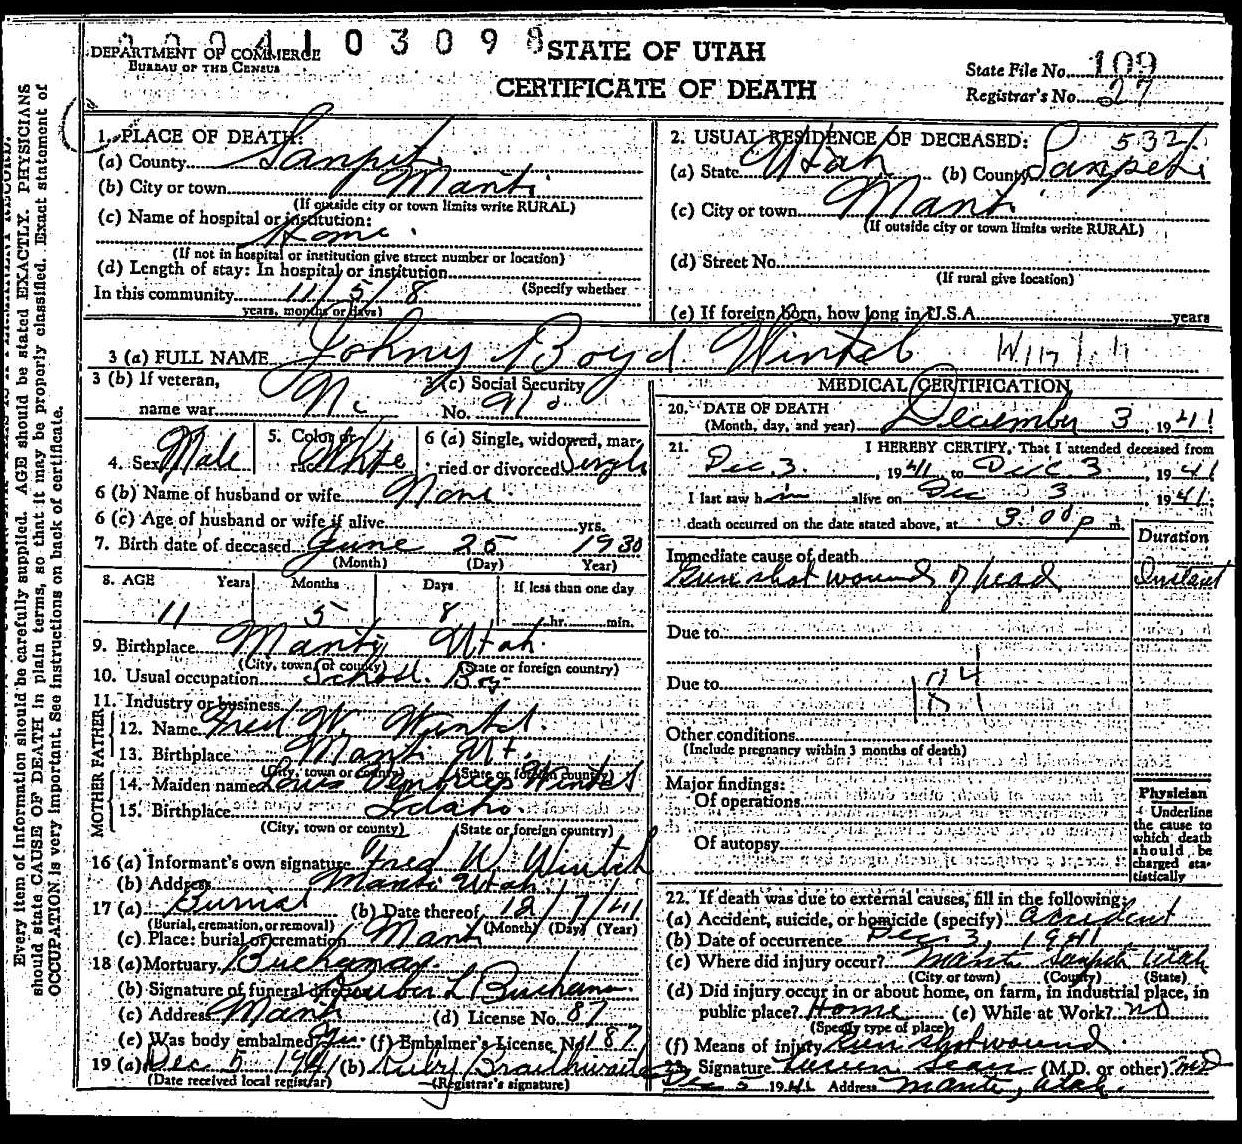 0004103098
DEPARTMENT OF COMMERCE
BUREAU OF THE CENSUS
STATE OF UTAH
CERTIFICATE OF DEATH
State File No. 109
Registrar's No. 27
Every item of information should be carefully supplied. AGE should be stated EXACTLY. PHYSICIANS
should state CAUSE OF DEATH in plain terms, so that it may be properly classified. Exact statement of
OCCUPATION is very important. See instructions on back of certificate.
1. PLACE OF DEATH:
(a) County Sanpete
(b) City or town Manti
(If outside city or town limits write RURAL)
(c) Name of hospital or institution:
Home.
(If not in hospital or institution give street number or location)
(d) Length of stay: In hospital or institution
In this community 11/5/8 (Specify whether
years, months or days)
2. USUAL RESIDENCE OF DECEASED: 532
(a) State Utah (b) County Sanpete
(c) City or town Manti
(If outside city or town limits write RURAL)
(d) Street No.
(If rural give location)
(e) If foreign born, how long in U.S.A. years
3 (a) FULL NAME Johny Boyd Wintch
3 (b) If veteran,
name war No
3 (c) Social Security
No. No
4. Sex Male
5. Color or
race White
6 (a) Single, widowed, mar-
ried or divorced Single
6 (b) Name of husband or wife None
6 (c) Age of husband or wife if alive yrs.
7. Birth date of deceased June 25 1930
(Month) (Day) Year)
8. AGE Years Months Days If less than one day
11 5 8 hr. min.
9. Birthplace Manti Utah
(City, town or county) (State or foreign country)
10. Usual occupation School Boy
11. Industry or business
FATHER
12. Name Fred W. Wintch
13. Birthplace Manti Ut.
(City, town or county) (State or foreign country)
MOTHER
14. Maiden name Wintch
15. Birthplace Idaho.
(City, town or county) (State or foreign country)
16 (a) Informant's own signature Fred W Wintch
(b) Address Manti Utah
17 (a) Burial (b) Date thereof 12/7/41
(Burial, cremation, or removal) (Month) (Day) (Year)
(c) Place: burial or cremation Manti
18 (a) Mortuary Buchanan
(b) Signature of funeral director L Buchanan
(c) Address Manti (d) License No. 87
(e) Was body embalmed? Yes (f) Embalmer's License No. 187
19 (a) Dec 5 1941 (b) Ruby Braithwaite
(Date received local registrar) (Registrar's signature)
MEDICAL CERTIFICATION
20. DATE OF DEATH
(Month, day, and year) December 3, 1941
21. I HEREBY CERTIFY, That I attended deceased from
Dec. 3, 1941 to Dec 3, 1941
I last saw him alive on Dec 3 1941.
death occurred on the date stated above, at 3:00 p m.
Duration
Immediate cause of death
Gun shot wound of head Instant
Due to
Due to
Other conditions
(Include pregnancy within 3 months of death)
Major findings:
Of operations
Of autopsy
Physician
Underline
the cause to
which death
should be
charged sta-
tistically
22. If death was due to external causes, fill in the following:
(a) Accident, suicide, or homicide (specify) accident
(b) Date of occurrence Dec 3, 1941
(c) Where did injury occur? Manti Sanpete Utah
(City or town) (County) (State)
(d) Did injury occur in or about home, on farm, in industrial place, in
public place? Home (e) While at Work? no
(Specify type of place)
(f) Means of injury Gun shot wound
23. Signature Sears (M.D. or other) MD
Dec 5 1941 Address Manti, Utah.